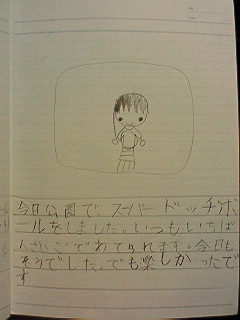 今日公園で、スーパードッヂボ
ールをしました。いつもいちば
んさいごであてられます。今日も
そうでした。でも楽しかったで
す